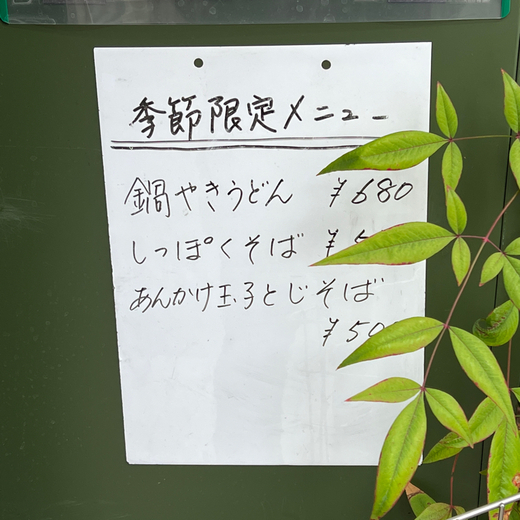 季節限定メニュー
鍋やきうどん ¥680
しっぽくそば ¥5
あんかけ玉子とじそば
¥50